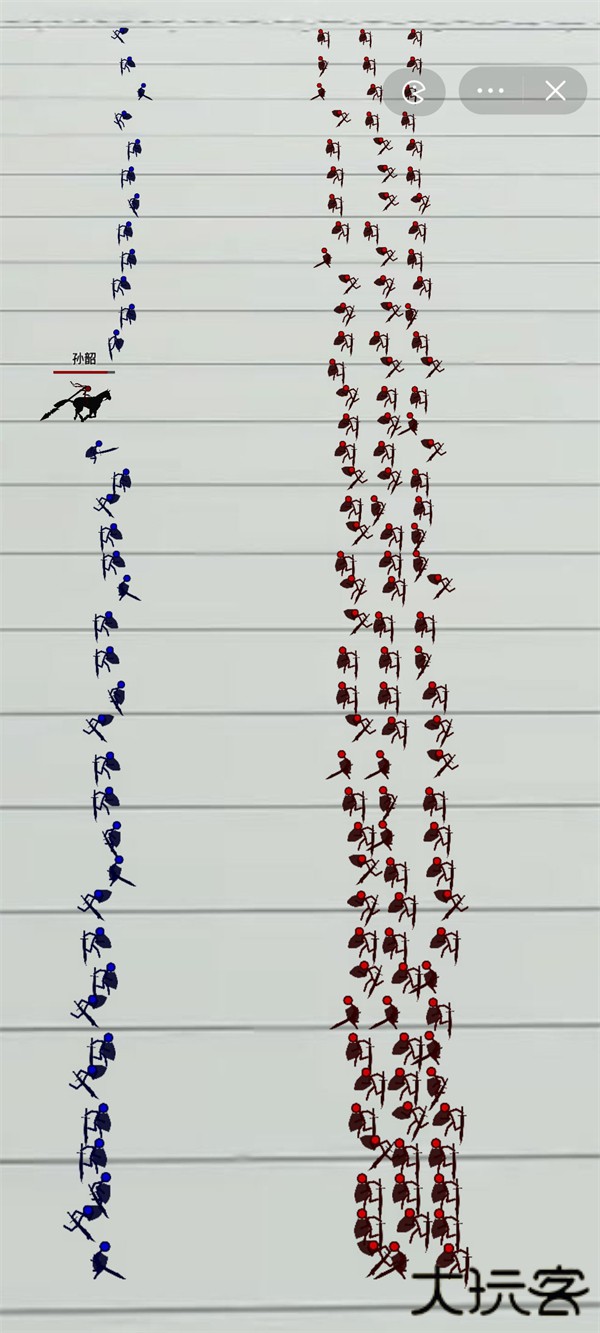 孙韶
大玩客